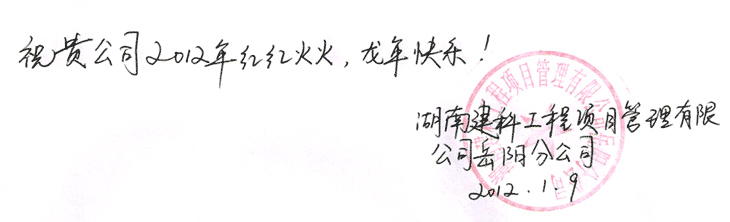 祝贵公司2012年红红火火，龙年快乐！
湖南建科工程项目管理有限
公司岳阳分公司
2012.1.9
程项目管理有限公司